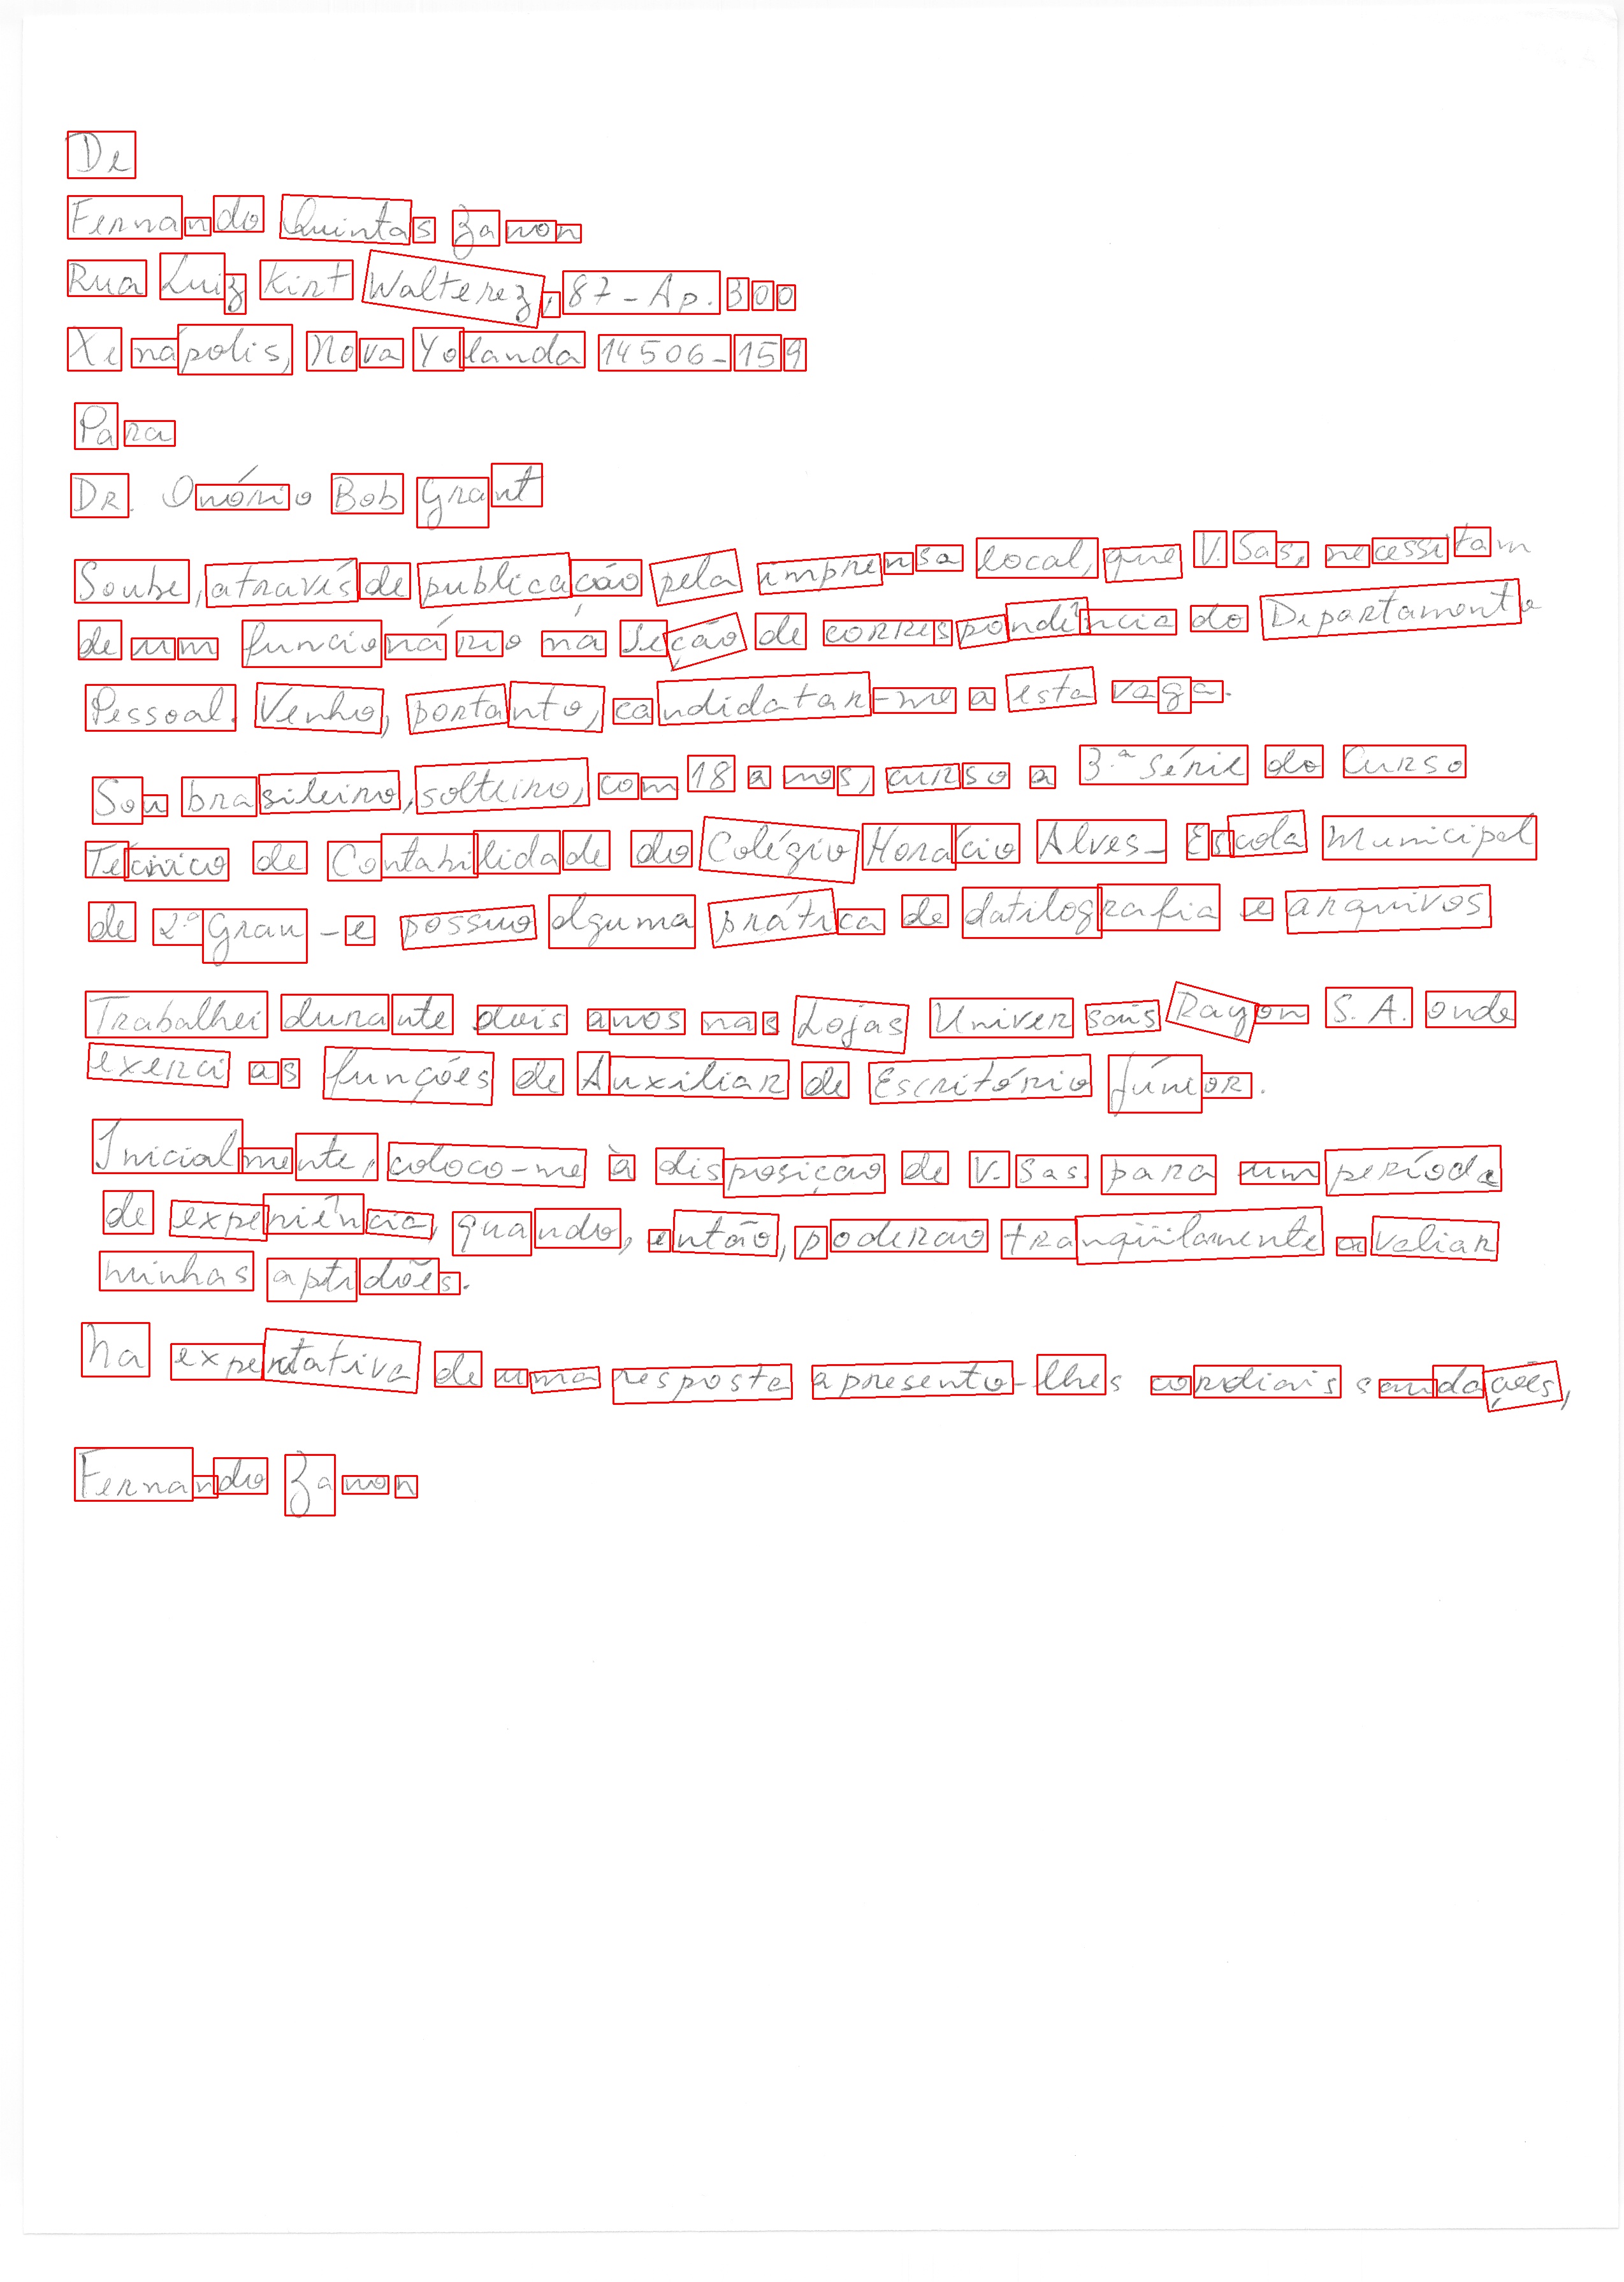 De
Fernando Quintas Zanon
Rua Luiz Kirt Walterez, 87-Ap. 300
Xenápolis, Nova Yolanda 14506-159
Para
DR. Onório Bob Grant
Soube, através de publicação pela imprensa local, que V.Sas, necessitam
de um funcionário na Seção de correspondência do Departamento
Pessoal. Venho, portanto, candidatar-me a esta vaga.
Sou brasileiro, solteiro, com 18 anos, curso a 3.ª série do Curso
Técnico de Contabilidade do Colégio Horácio Alves- Escola Municipal
de 2º Grau - e possuo alguma prática de datilografia e arquivos
Trabalhei durante dois anos nas Lojas Universais Rayon S.A. onde
exerci as funções de Auxiliar de Escritório Júnior.
Inicialmente, coloco-me à disposição de V.Sas. para um período
de experiência, quando, então, poderão tranqüilamente avaliar
minhas aptidões.
Na expectativa de uma resposta apresento-lhes cordiais saudações,
Fernando Zanon